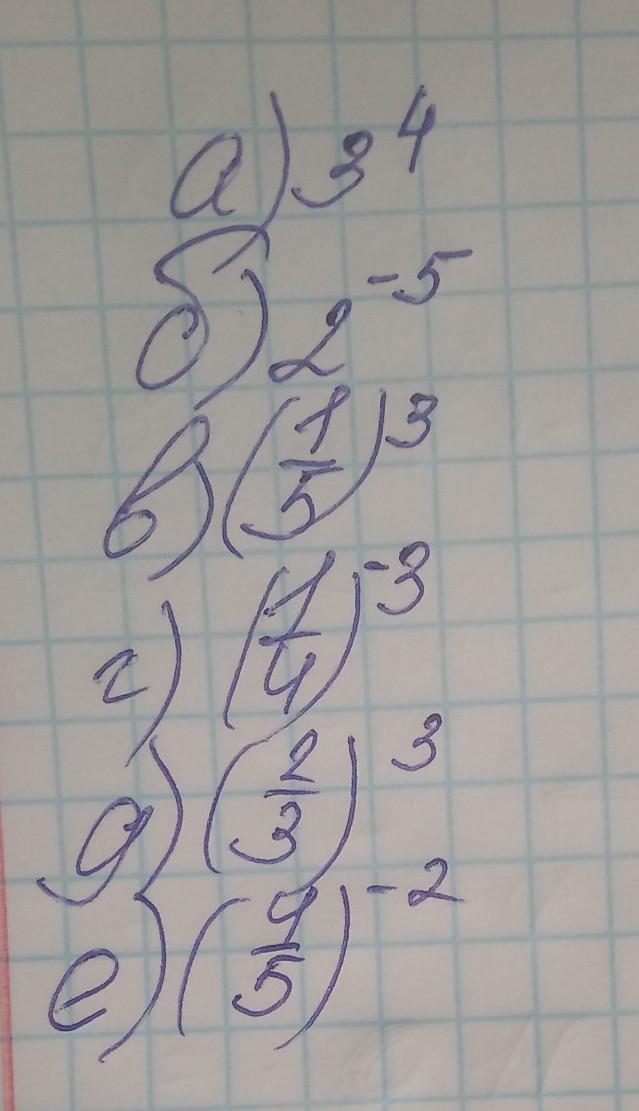 а) 3^4
б) 2^-5
в) (1/5)^3
г) (1/4)^-3
д) (2/3)^3
е) (4/5)^-2